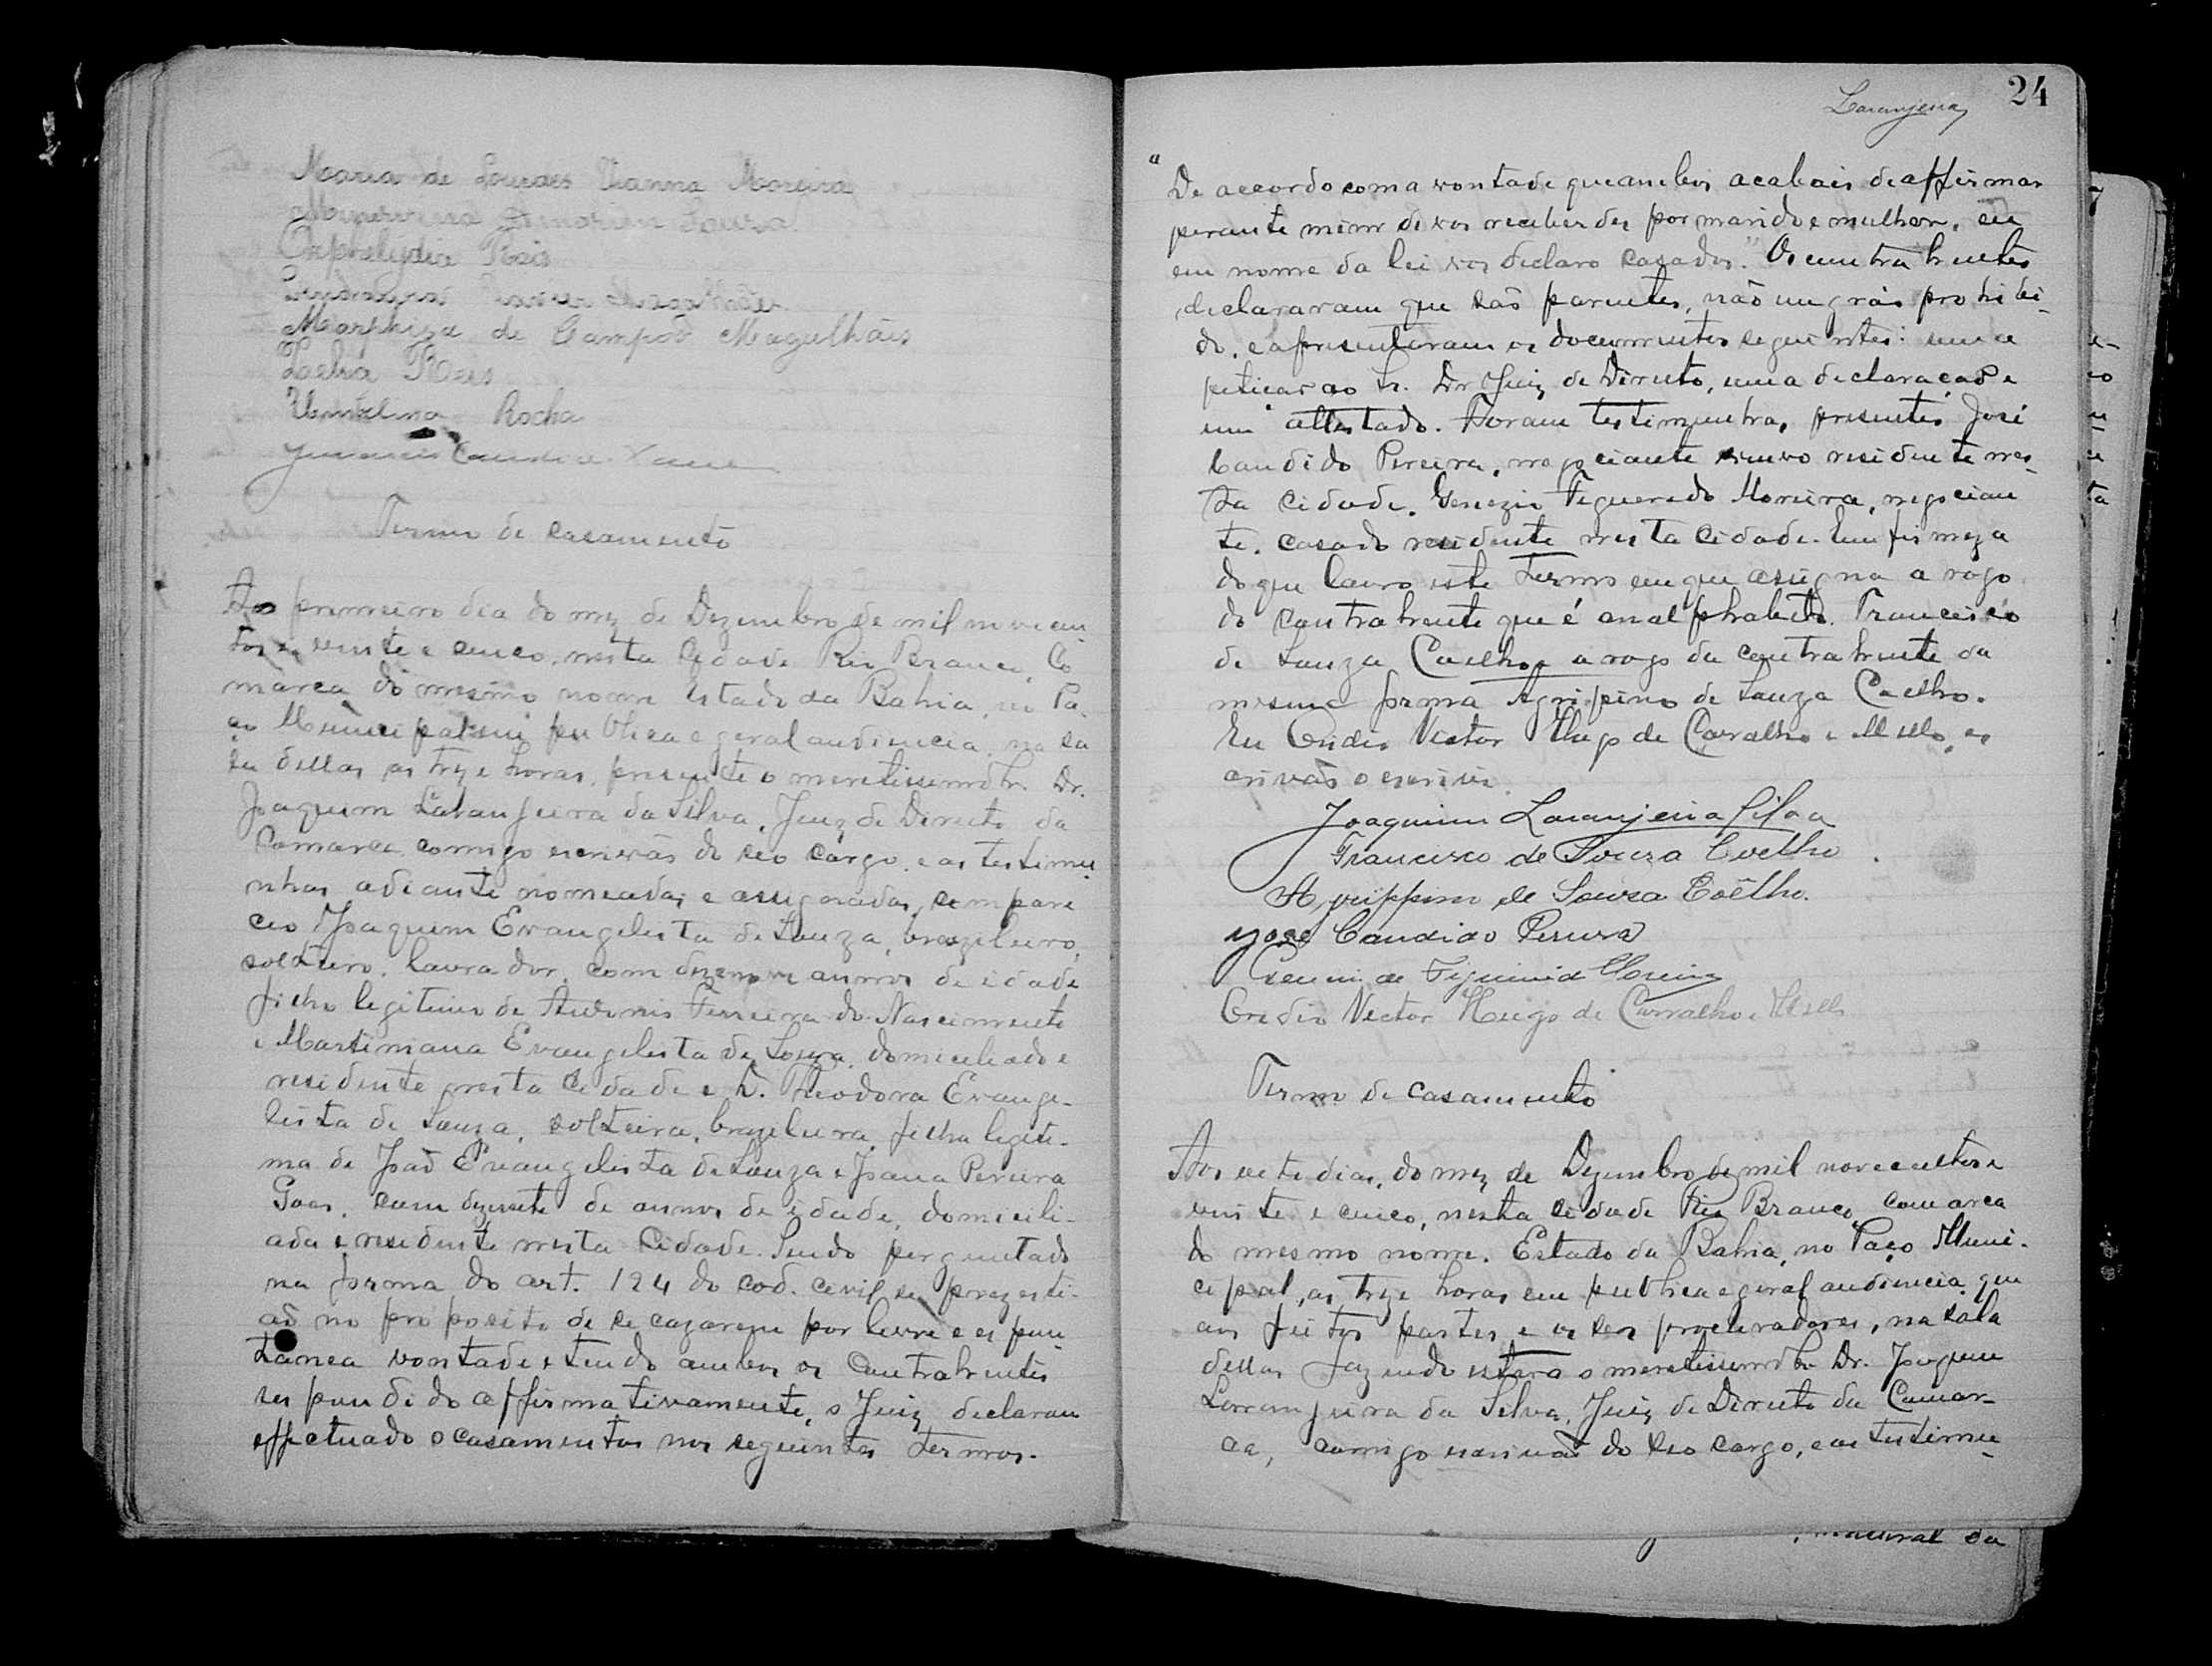 Maria de Lourdes Vianna Moreira
Souza
Orphelydia Reis
Morphiza de Campos Magalhães
Laelia Reis
Umbelina Rocha
Candido
Termo de casamento
Aos primeiro dia do mez de Dezembro de mil novecen-
tos e vinte e cinco, nesta Cidade Rio Branco, Co
marca do mesmo nome Estado da Bahia, no Pa.
ço Municipal em publica e geral audiencia, na sa
la dellas, as treze horas, presente o meretissimo Sr. Dr.
Joaquim Laranjeira da Silva, Juiz de Direito da
Comarca comigo escrivão do seo cargo, e as testimu
nhas adiante nomeadas e assignadas, compare
ceo Joaquim Evangelista de Souza, brazileiro,
solteiro, lavrador, com dezenove annos de idade
filho legitimo de Ferreira do Nascimento
e Martiniana Evangelista de Souza, domiciliado e
residente nesta Cidade e D. Theodora Evange-
lista de Souza, solteira, brazileira, filha legiti-
ma de João Evangelista de Souza e Joana Pereira
Goes, com dezesete de annos de idade, domicili-
ada e residente nesta Cidade. Sendo perguntado
na forma do art. 194 do cod. civil se prezesti-
ão no proposito de se cazarem por livre e espun
tanea vontade, e tendo ambos os Contrahentes
respundido affirmativamente, o Juiz declarau
effectuado o casamentos nos seguintes termos.
24
Laranjeira
"De accordo com a vontade que ambos acabais de affirmar
perante mim de vos receberdes por marido e mulher, eu
em nome da lei vos declaro casados." Os contrahentes
declararam que são parentes, não em gráo prohibi-
do, e apresentaram os documentos seguintes: uma
peticao ao Sr. Dr Juiz de Direito, uma declaração e
um attestado. Foram testimunhas presentes José
Candido Pereira, negociante viuvo residente nes-
ta cidade. Genezio Figueredo Moreira, negocian
te, casado residente nesta Cidade. Em firmeza
do que lavro este termo em que assigna a rogo
do contrahente que é analphabeto. Francisco
de Souza Coelho e a rogo da contrahente da
mesma forma Agripino de Souza Coelho.
Eu Victor Hugo de Carvalho e Mello, es
crivão o escrivi.
Joaquim Laranjeira Silva
Francisco de Souza Coelho
Agrippino de Souza Coêlho.
José Candido Pereira
Victor Hugo de Carvalho e Mello
Termo de casamento
Aos sete dias, do mez de Dezembro de mil novecentos e
vinte e cinco, nesta cidade Rio Branco, comarca
do mesmo nome. Estado da Bahia, no Paço Muni-
cipal, as treze horas em publica e geral audiencia que
aos feitos partes e os seos procuradores, na sala
dellas fazendo estava o meretissimo Sr. Dr. Joaquim
Larranjeira da Silva, Juiz de Direito da Comar-
ca, comigo escrivão do seo cargo, e as testimu-
natural da